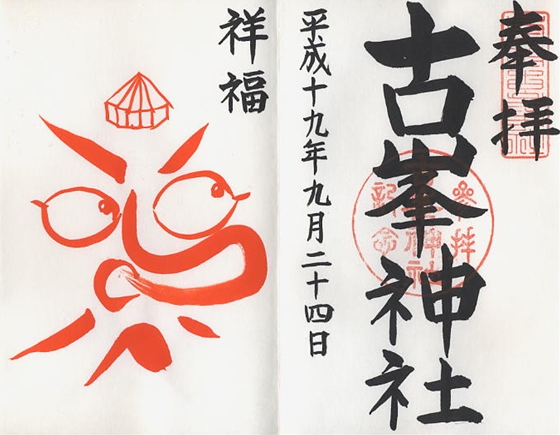 奉拝
古峯神社
平成十九年九月二十四日
祥福
参拝
神社
記念